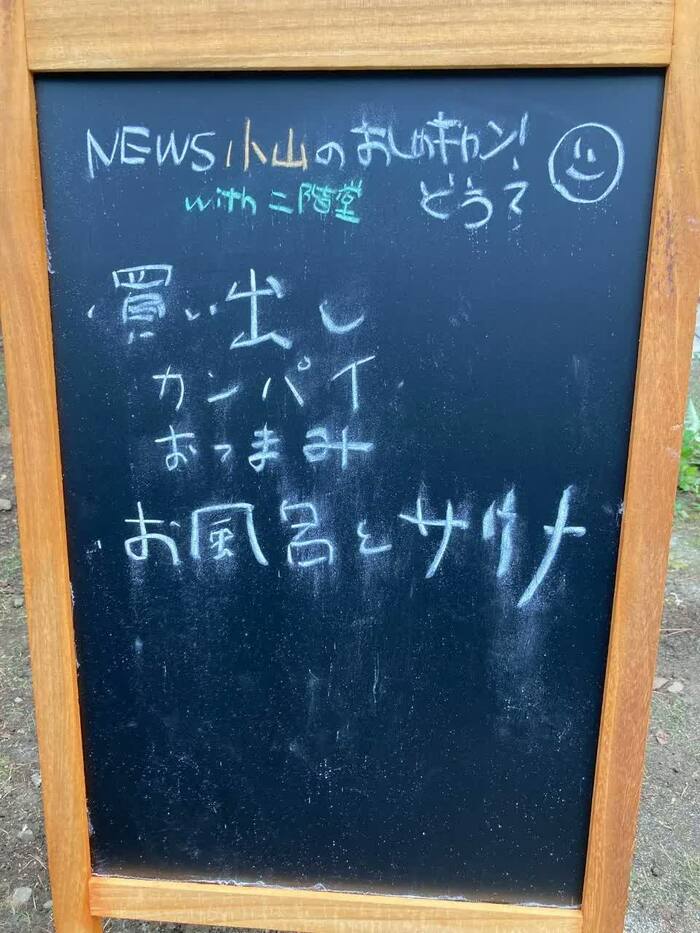 NEWS小山のおしゃキャン!
with 二階堂 どうて
・買い出し
カンパイ
おつまみ
・お風呂とサウナ